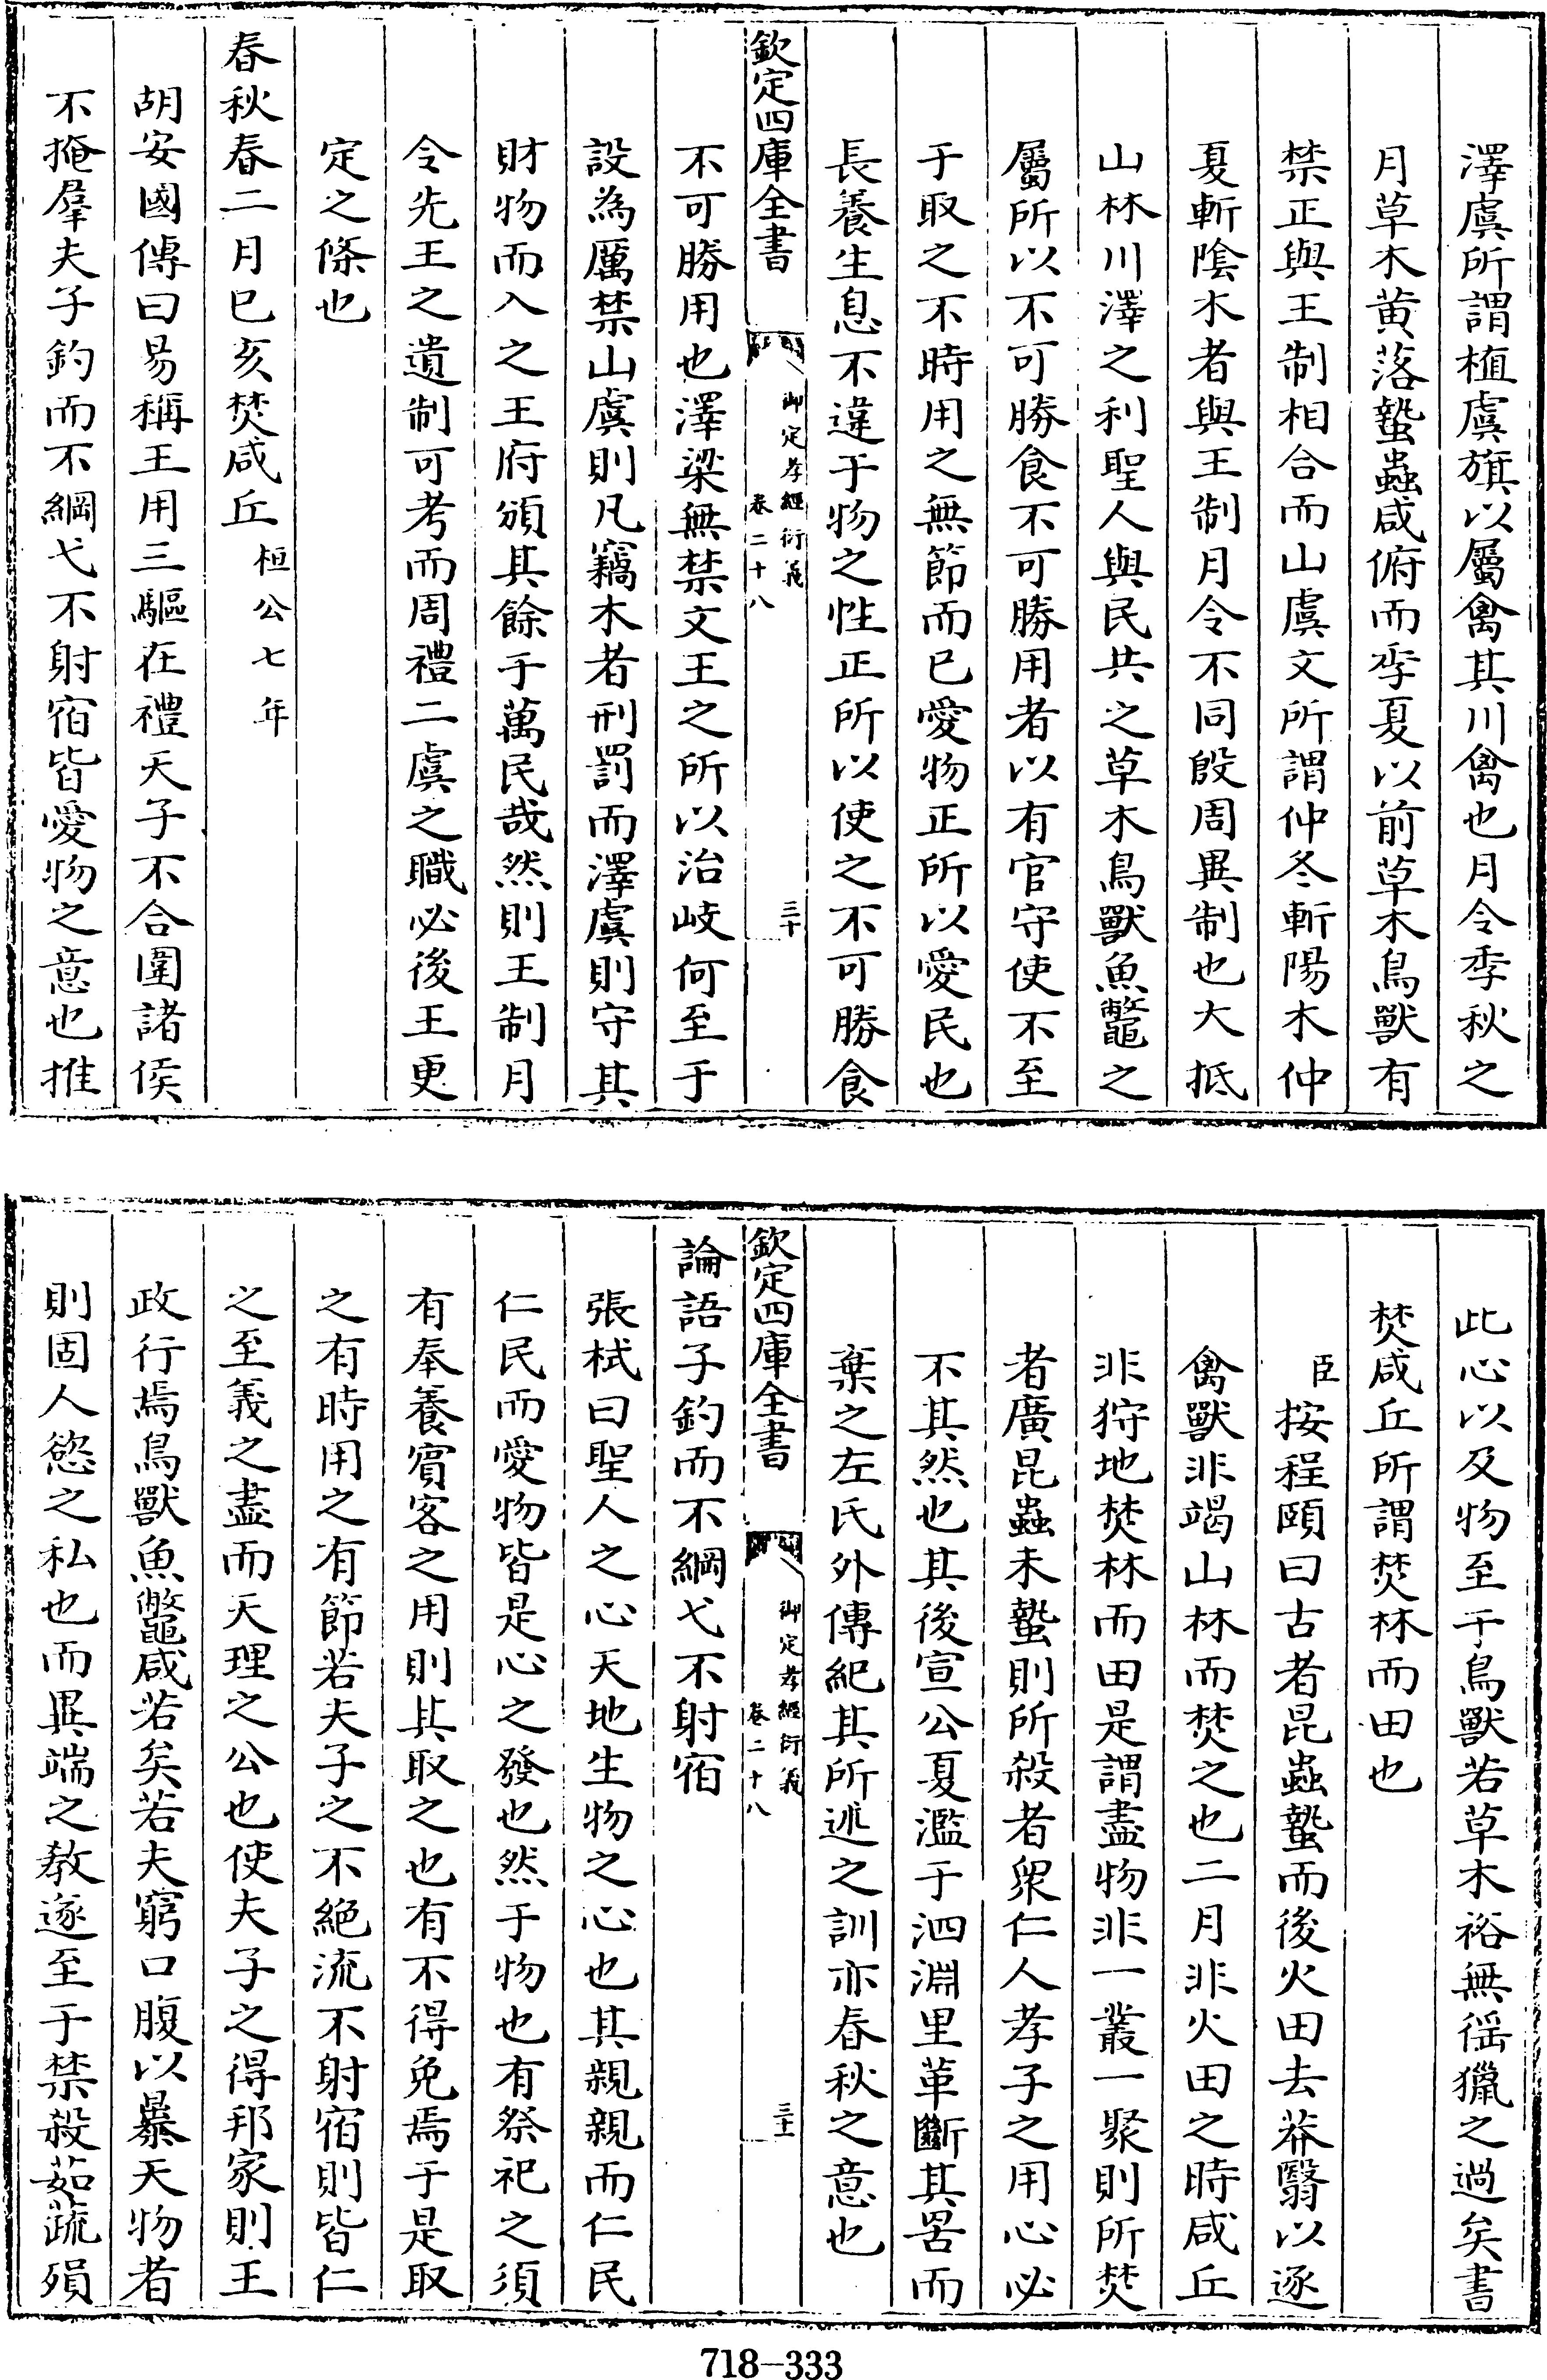 澤虞所謂植虞旗以屬禽其川禽也月令季秋之
月草木黄落蟄蟲咸俯而季夏以前草木鳥獸有
禁正與王制相合而山虞文所謂仲冬斬陽木仲
夏斬陰木者與王制月令不同殷周異制也大抵
山林川澤之利聖人與民共之草木鳥獸魚鼈之
屬所以不可勝食不可勝用者以有官守使不至
于取之不時用之無節而已愛物正所以愛民也
長養生息不違于物之性正所以使之不可勝食
欽定四庫全書
御定孝經衍義
卷二十八
三十
不可勝用也澤梁無禁文王之所以治岐何至于
設為厲禁山虞則凡竊木者刑罰而澤虞則守其
財物而入之王府頒其餘于萬民哉然則王制月
令先王之遺制可考而周禮二虞之職必後王更
定之條也
春秋春二月已亥焚咸丘桓公七年
胡安國傳曰易稱王用三驅在禮天子不合圍諸侯
不掩羣夫子釣而不綱弋不射宿皆愛物之意也推
此心以及物至于鳥獸若草木裕無徭獵之過矣書
焚咸丘所謂焚林而田也
臣按程頤曰古者昆蟲蟄而後火田去莽翳以逐
禽獸非竭山林而焚之也二月非火田之時咸丘
非狩地焚林而田是謂盡物非一叢一聚則所焚
者廣昆蟲未蟄則所殺者衆仁人孝子之用心必
不其然也其後宣公夏濫于泗淵里革斷其罟而
棄之左氏外傳紀其所述之訓亦春秋之意也
欽定四庫全書
御定孝經衍義
卷二十八
三十一
論語子釣而不綱弋不射宿
張栻曰聖人之心天地生物之心也其親親而仁民
仁民而愛物皆是心之發也然于物也有祭祀之須
有奉養賓客之用則其取之也有不得免焉于是取
之有時用之有節若夫子之不絕流不射宿則皆仁
之至義之盡而天理之公也使夫子之得邦家則王
政行焉鳥獸魚鼈咸若矣若夫窮口腹以暴天物者
則固人慾之私也而異端之教遂至于禁殺茹蔬殞
718-333